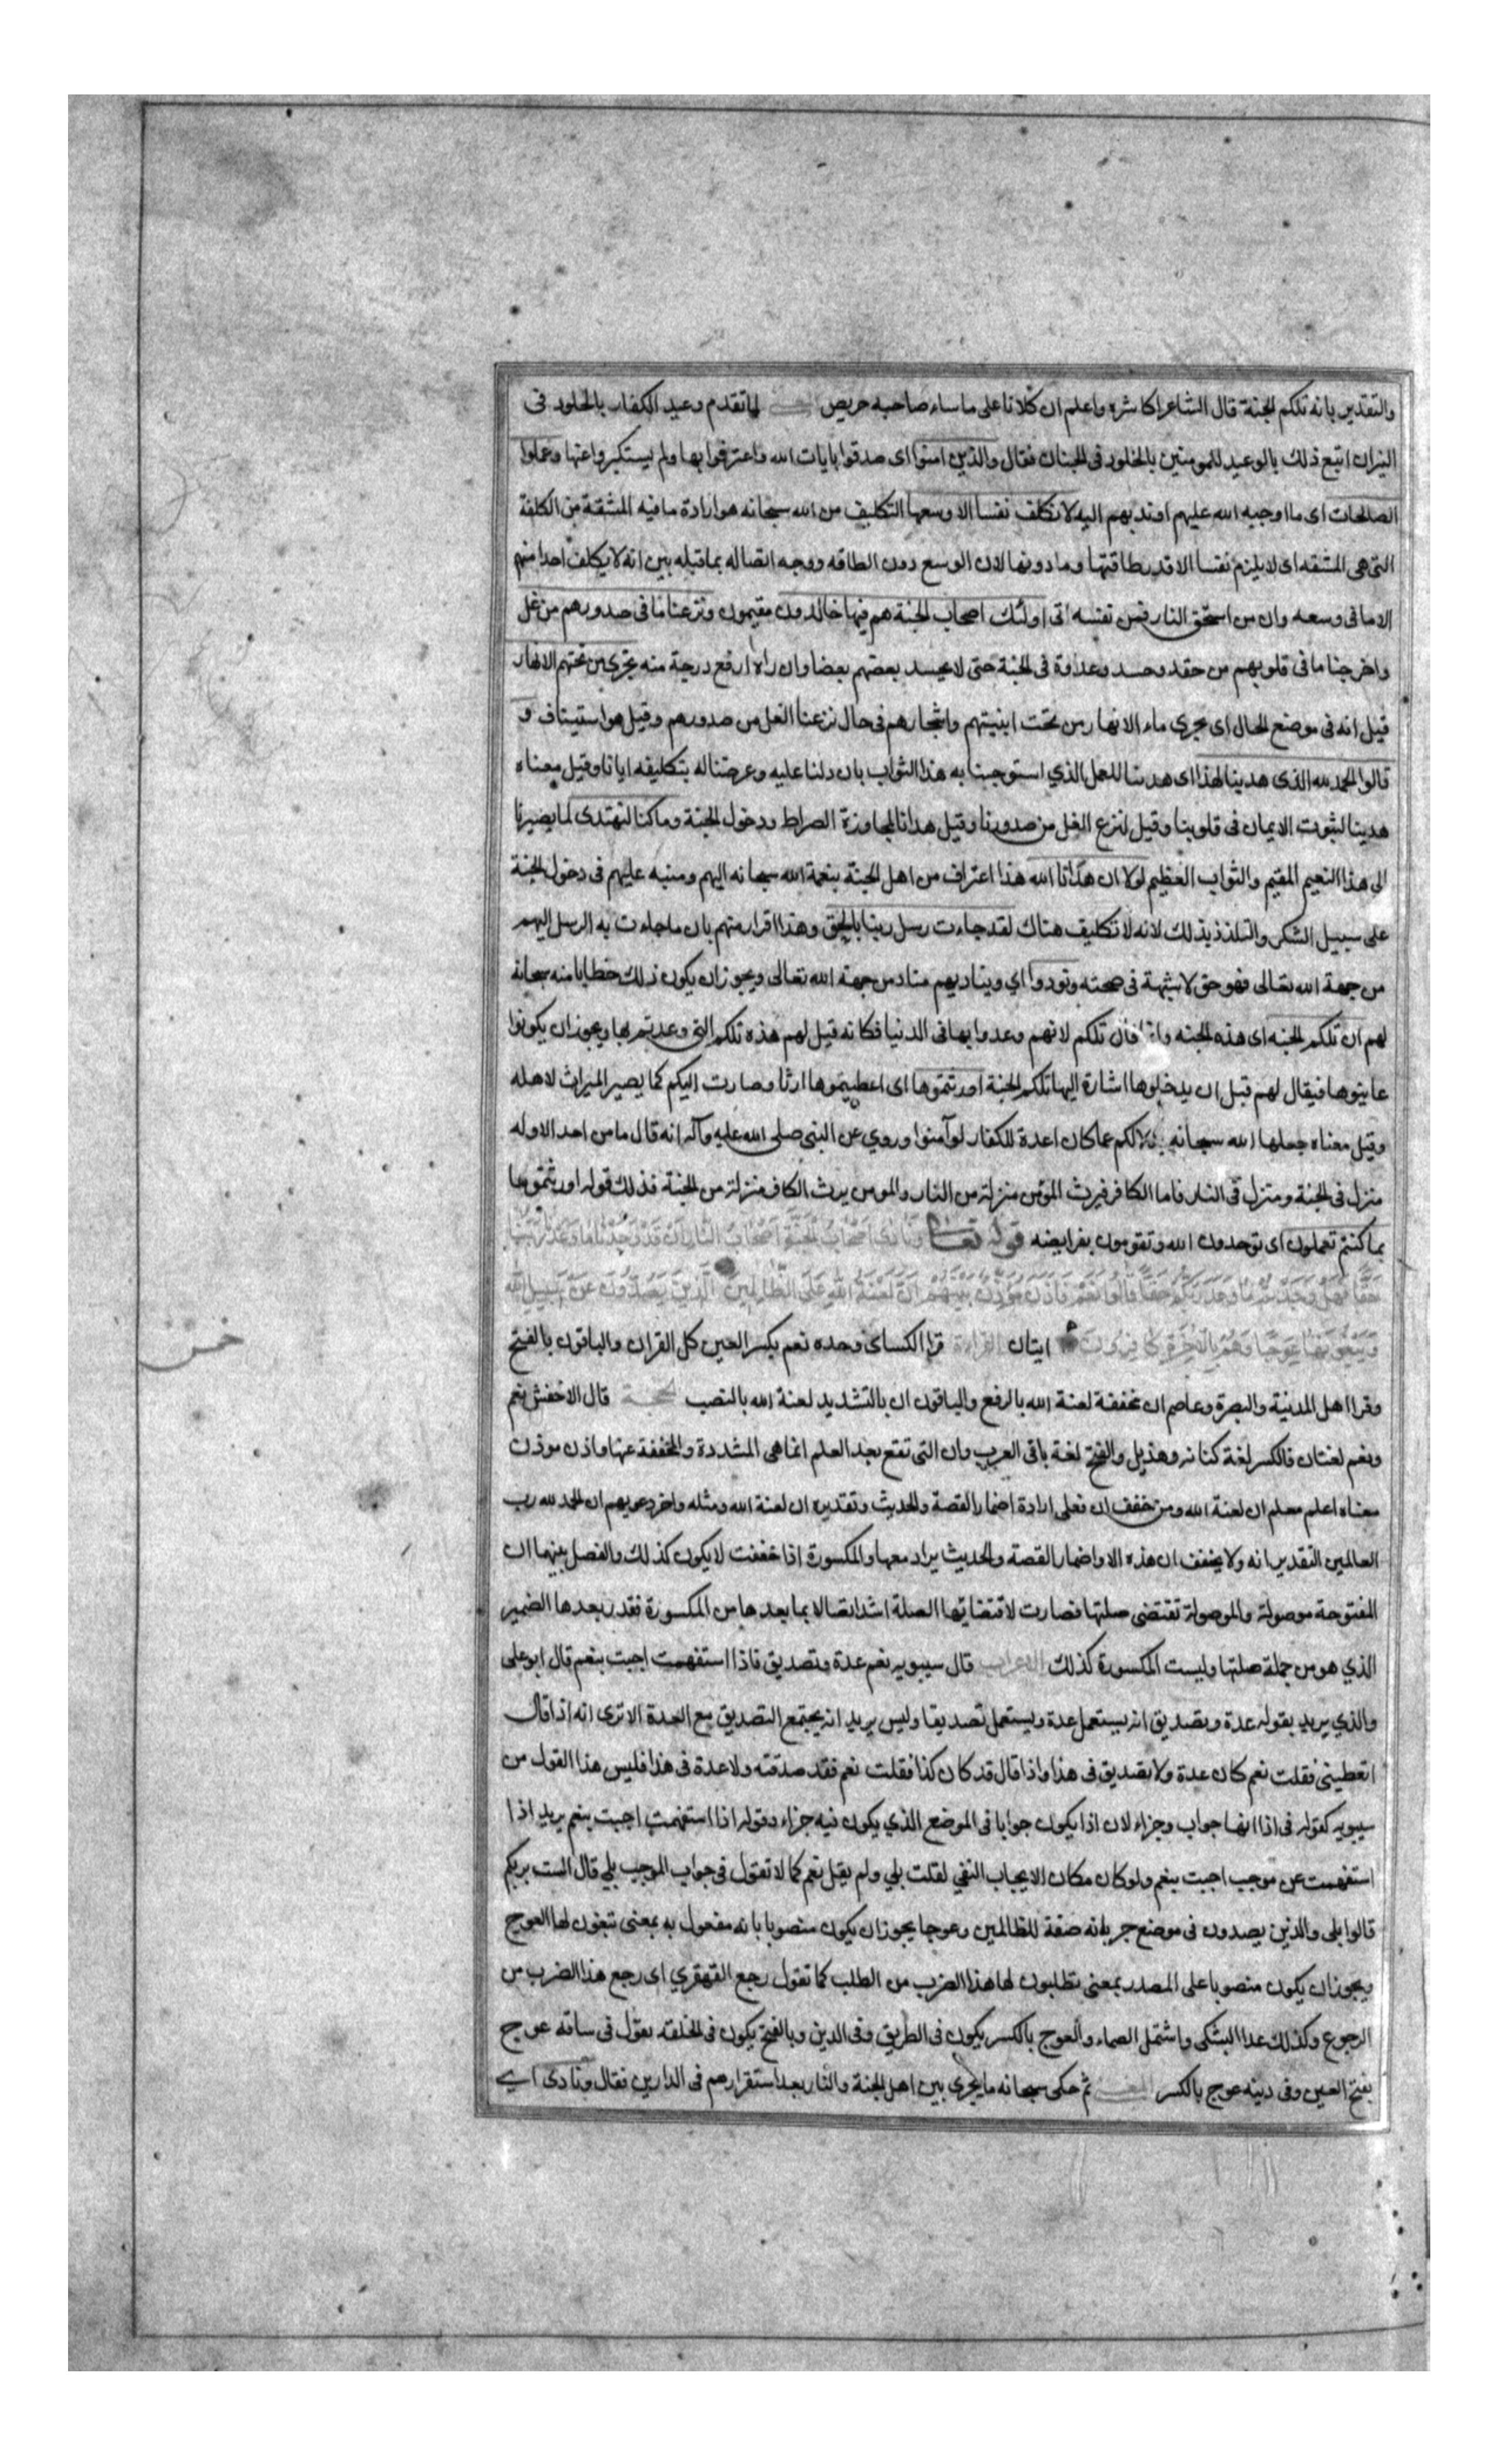 والتقدير بانه تلكم الجنة قال الشاعر اكاشره واعلم ان كلانا على ماساء صاحبه حريص المعنى لما تقدم وعيد الكفار بالخلود فى
النيران اتبع ذلك بالوعيد للمومنين بالخلود فى الجنان فقال والذين امنوا اى صدقوا بايات الله واعترفوا بها ولم يستكبروا عنها وعملوا
الصالحات اى ما اوجبه الله عليهم او ندبهم اليه لا نكلف نفسا الا وسعها التكليف من الله سبحانه هو ارادة ما فيه المشقة من الكلفة
التى هى المشقه اى لا يلزم نفسا الا قدر طاقتها وما دونها لان الوسع دون الطاقه ووجه اتصاله بما قبله بين انه لا يكلف احدا منهم
الا ما فى وسعه وان من استحق النار فمن نفسه اتى اولئك اصحاب الجنة هم فيها خالدون مقيمون ونزعنا ما فى صدورهم من غل
واخرجنا ما فى قلوبهم من حقد وحسد وعداوة فى الجنة حتى لا يحسد بعضهم بعضا وان راه ارفع درجة منه تجرى من تحتهم الانهار
قيل انه فى موضع الحال اى يجرى ماء الانهار من تحت ابنيتهم واشجارهم فى حال نزعنا الغل من صدورهم وقيل هو استيناف و
قالوا الحمد لله الذى هدينا لهذا اى هدينا للعمل الذي استوجبنا به هذا الثواب بان دلنا عليه وعرضنا له بتكليفه ايانا وقيل معناه
هدينا لثبوت الايمان فى قلوبنا وقيل لنزع الغل من صدورنا وقيل هدانا لمجاوزة الصراط ودخول الجنة وما كنا لنهتدى لما يصيرنا
الى هذا النعيم المقيم والثواب العظيم لولا ان هدانا الله هذا اعتراف من اهل الجنة بنعمة الله سبحانه اليهم ومنبه عليهم فى دخول الجنة
على سبيل الشكر والتلذذ بذلك لانه لا تكليف هناك لقد جاءت رسل ربنا بالحق وهذا اقرار منهم بان ما جاءت به الرسل اليهم
من جهة الله تعالى فهو حق لا شبهة فى صحته ونودوا اي ويناديهم مناد من جهة الله تعالى ويجوز ان يكون ذلك خطابا منه سبحانه
لهم ان تلكم الجنه اى هذه الجنه وانما قال تلكم لانهم وعدوا بها فى الدنيا فكانه قيل لهم هذه تلكم التى وعدتم بها ويجوز ان يكونوا
عاينوها فيقال لهم قبل ان يدخلوها اشارة اليها تلكم الجنة اورثتموها اى اعطيتموها ارثا وصارت اليكم كما يصير الميراث لاهله
وقيل معناه جعلها الله سبحانه بدلا لكم عما كان اعدة للكفار لو آمنوا وروي عن النبى صلى الله عليه وآله انه قال ما من احد الا وله
منزل فى الجنة ومنزل فى النار فاما الكافر فيرث المؤمن منزلته من النار والمومن يرث الكافر منزلته من الجنة فذلك قوله اورثتموها
بما كنتم تعملون اى توحدون الله وتقومون بفرايضه قوله تعالى ونادى اصحاب الجنة اصحاب النار ان قد وجدنا ما وعدنا ربنا
حقا فهل وجدتم ما وعد ربكم حقا قالوا نعم فاذن مؤذن بينهم ان لعنة الله على الظالمين الذين يصدون عن سبيل الله
ويبغونها عوجا وهم بالاخرة كافرون ايتان القراءة قرا الكسائى وحده نعم بكسر العين كل القران والباقون بالفتح
وقرا اهل المدنية والبصرة وعاصم ان مخففة لعنة الله بالرفع والباقون ان بالتشديد لعنة الله بالنصب الحجة قال الاخفش نعم
ونعم لغتان فالكسر لغة كنانه وهذيل والفتح لغة باقى العرب وان التى تقع بعد العلم انما هى المشددة والمخففة عنها واذن موذن
معناه اعلم معلم ان لعنة الله ومن خفف ان فعلى ارادة اضمار القصة والحديث وتقديره ان لعنة الله ومثله واخر دعويهم ان الحمد لله رب
العالمين التقدير انه ولا يخفف ان هذه الا واضمار القصة والحديث يراد معها والمكسورة اذا خففت لا يكون كذلك والفصل بينهما ان
المفتوحة موصولة والموصولة تقتضى صلتها فصارت لاقتضائها الصلة اشد اتصالا بما بعدها من المكسورة فقدر بعدها الضمير
الذي هو من جملة صلتها وليست المكسورة كذلك الاعراب قال سيبويه نعم عدة وتصديق فاذا استفهمت اجبت بنعم قال ابو على
والذي يريد بقوله عدة وتصديق انه يستعمل عدة ويستعمل تصديقا وليس يريد انه يجتمع التصديق مع العدة الا ترى انه اذا قال
اتعطينى فقلت نعم كان عدة ولا تصديق فى هذا واذا قال قد كان كذا فقلت نعم فقد صدقته ولا عدة فى هذا فليس هذا القول من
سيبويه كقوله فى اذا انها جواب وجزاء لان اذا يكون جوابا فى الموضع الذي يكون فيه جزاء وقوله اذا استفهمت اجبت بنعم يريد اذا
استفهمت عن موجب اجبت بنعم ولو كان مكان الايجاب النفي لقلت بلي ولم يقل نعم كما لا تقول فى جواب الموجب بلي قال الست بربكم
قالوا بلى والذين يصدون فى موضع جر بانه صفة للظالمين وعوجا يجوز ان يكون منصوبا بانه مفعول به بمعنى تبغون لها العوج
ويجوز ان يكون منصوبا على المصدر بمعنى تطلبون لها هذا الضرب من الطلب كما تقول رجع القهقري اى رجع هذا الضرب من
الرجوع وكذلك عدا البشكى واشتمل الصماء والعوج بالكسر يكون فى الطريق وفى الدين وبالفتح يكون فى الخلقه تقول فى ساقه عوج
بفتح العين وفى دينه عوج بالكسر المعنى ثم حكى سبحانه ما يجرى بين اهل الجنة والنار بعد استقرارهم فى الدارين فقال ونادى اي
خمس